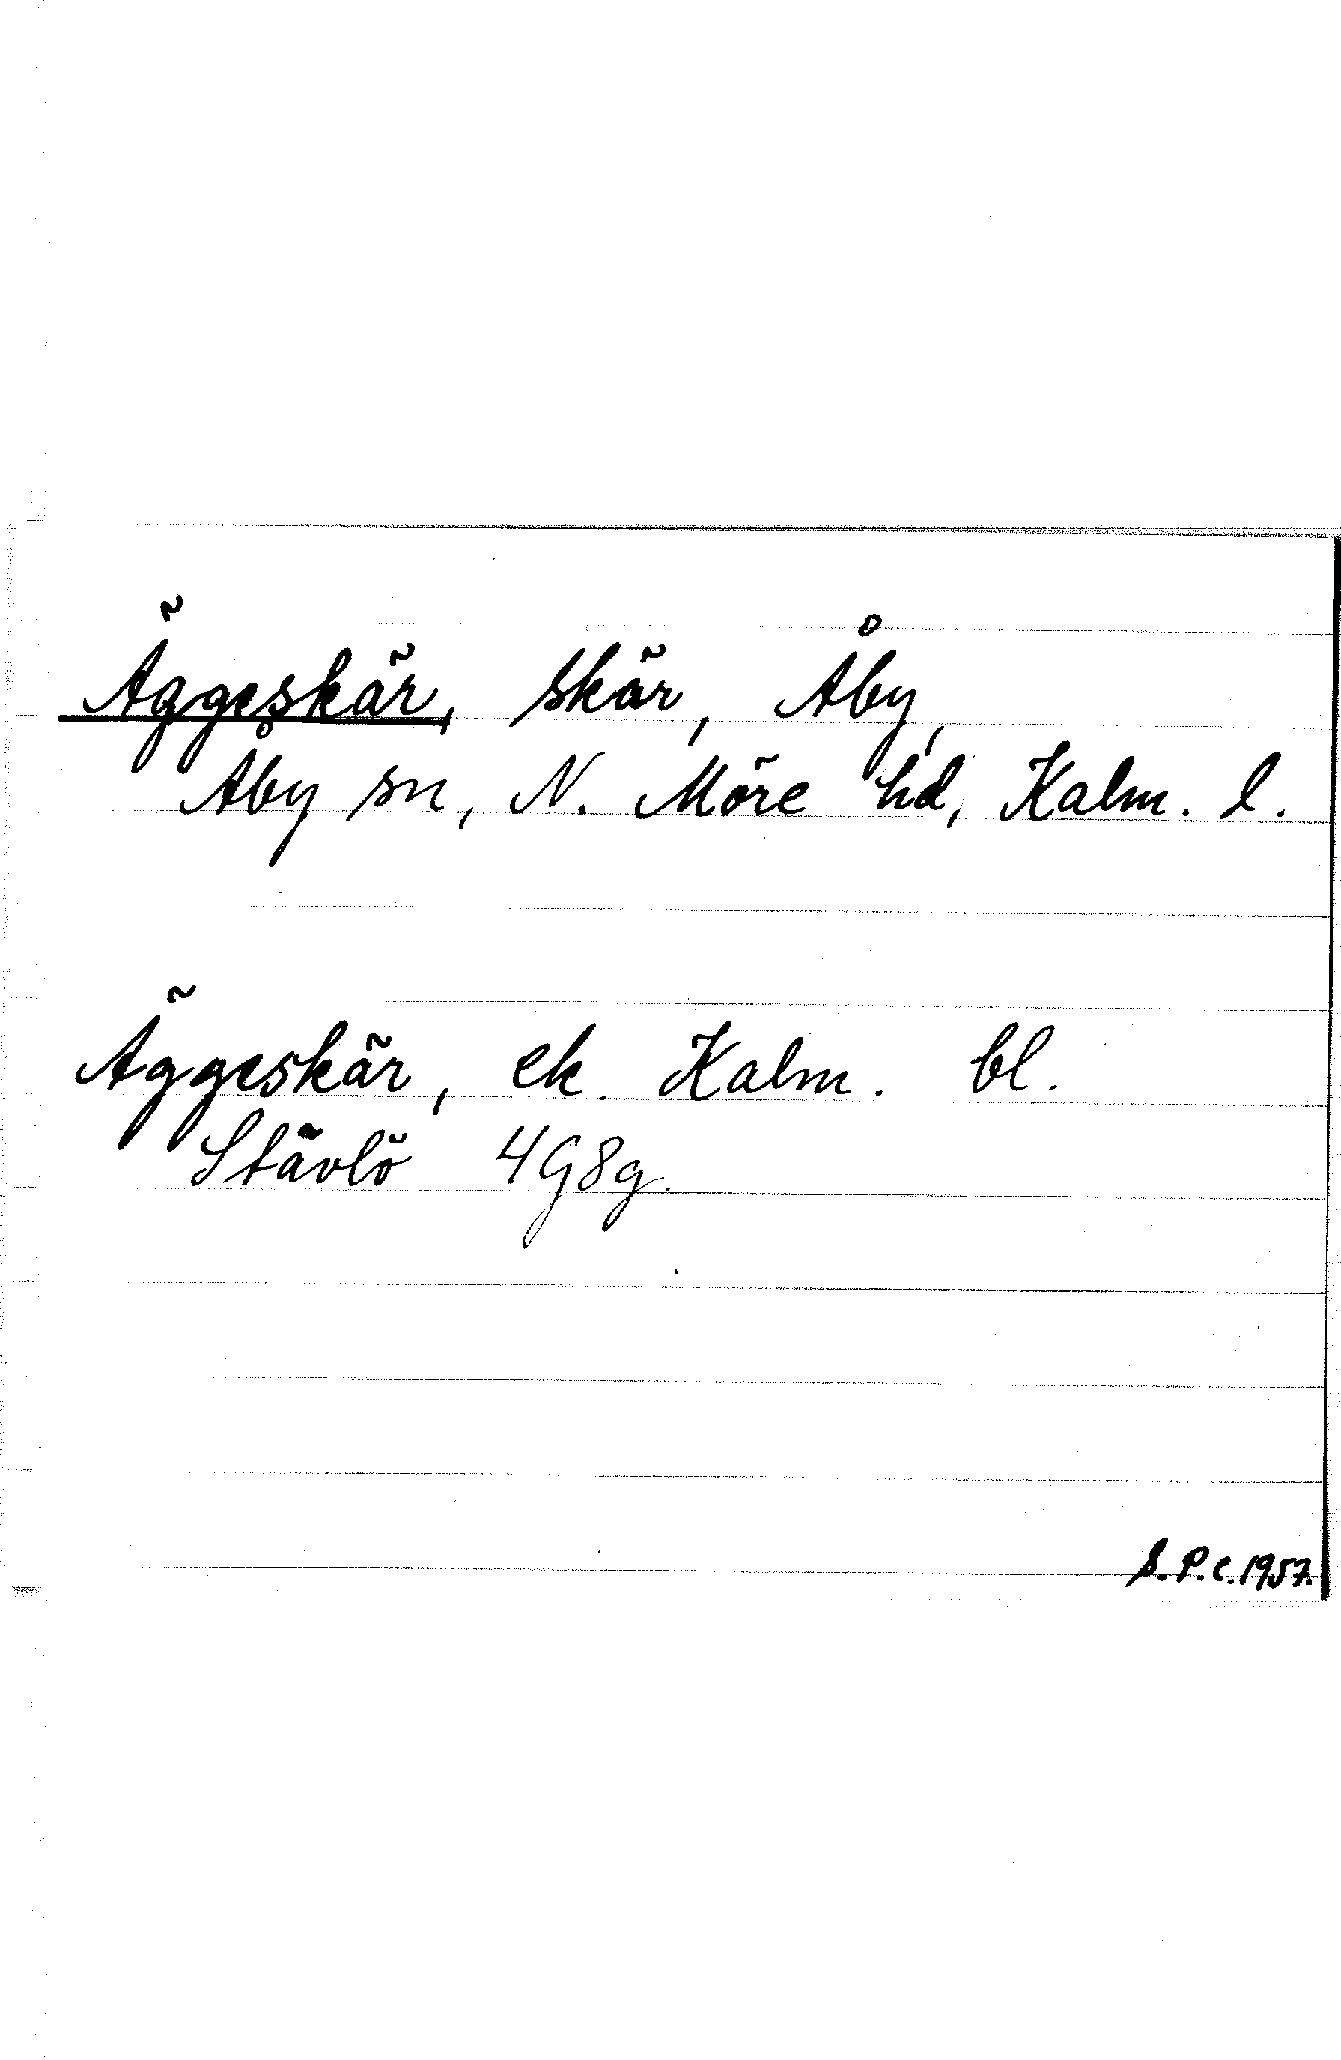 Äggeskär, skär, Åby,
Åby sn, N. Möre hd, Kalm. l.
Äggeskär, ek. Kalm. bl.
Stävlö 4G8g.
S.P.C. 1957.